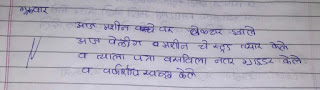 शुक्रवार
आज मशीन वर चे पर सेक्टर झाले
आज वेल्डींग व मशीन चे स्टड तयार केले
व त्याला पत्रा बसविला नंतर ग्राइंडर केले
व वर्कशॉप स्वच्छ केले